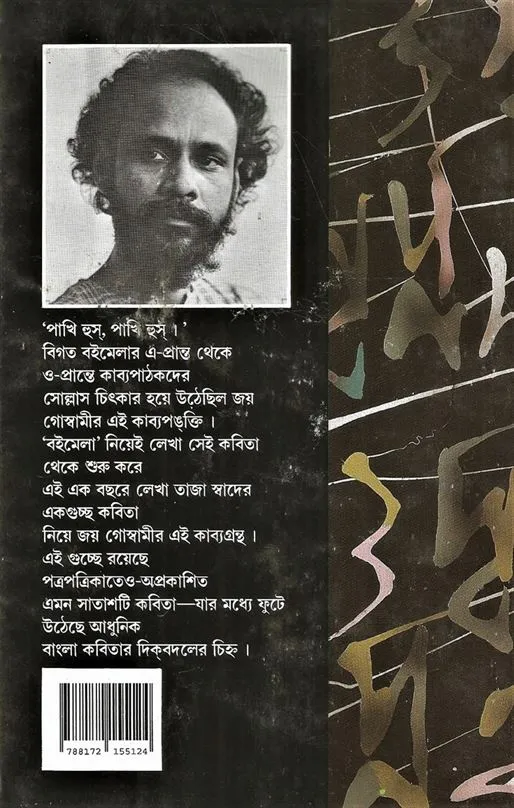 ‘পাখি হুস্, পাখি হুস্ ।’
বিগত বইমেলার এ-প্রান্ত থেকে
ও-প্রান্তে কাব্যপাঠকদের
সোল্লাস চিৎকার হয়ে উঠেছিল জয়
গোস্বামীর এই কাব্যপঙ্‌ক্তি ।
‘বইমেলা’ নিয়েই লেখা সেই কবিতা
থেকে শুরু করে
এই এক বছরে লেখা তাজা স্বাদের
একগুচ্ছ কবিতা
নিয়ে জয় গোস্বামীর এই কাব্যগ্রন্থ ।
এই গুচ্ছে রয়েছে
পত্রপত্রিকাতেও-অপ্রকাশিত
এমন সাতাশটি কবিতা—যার মধ্যে ফুটে
উঠেছে আধুনিক
বাংলা কবিতার দিক্‌বদলের চিহ্ন ।
788172 155124